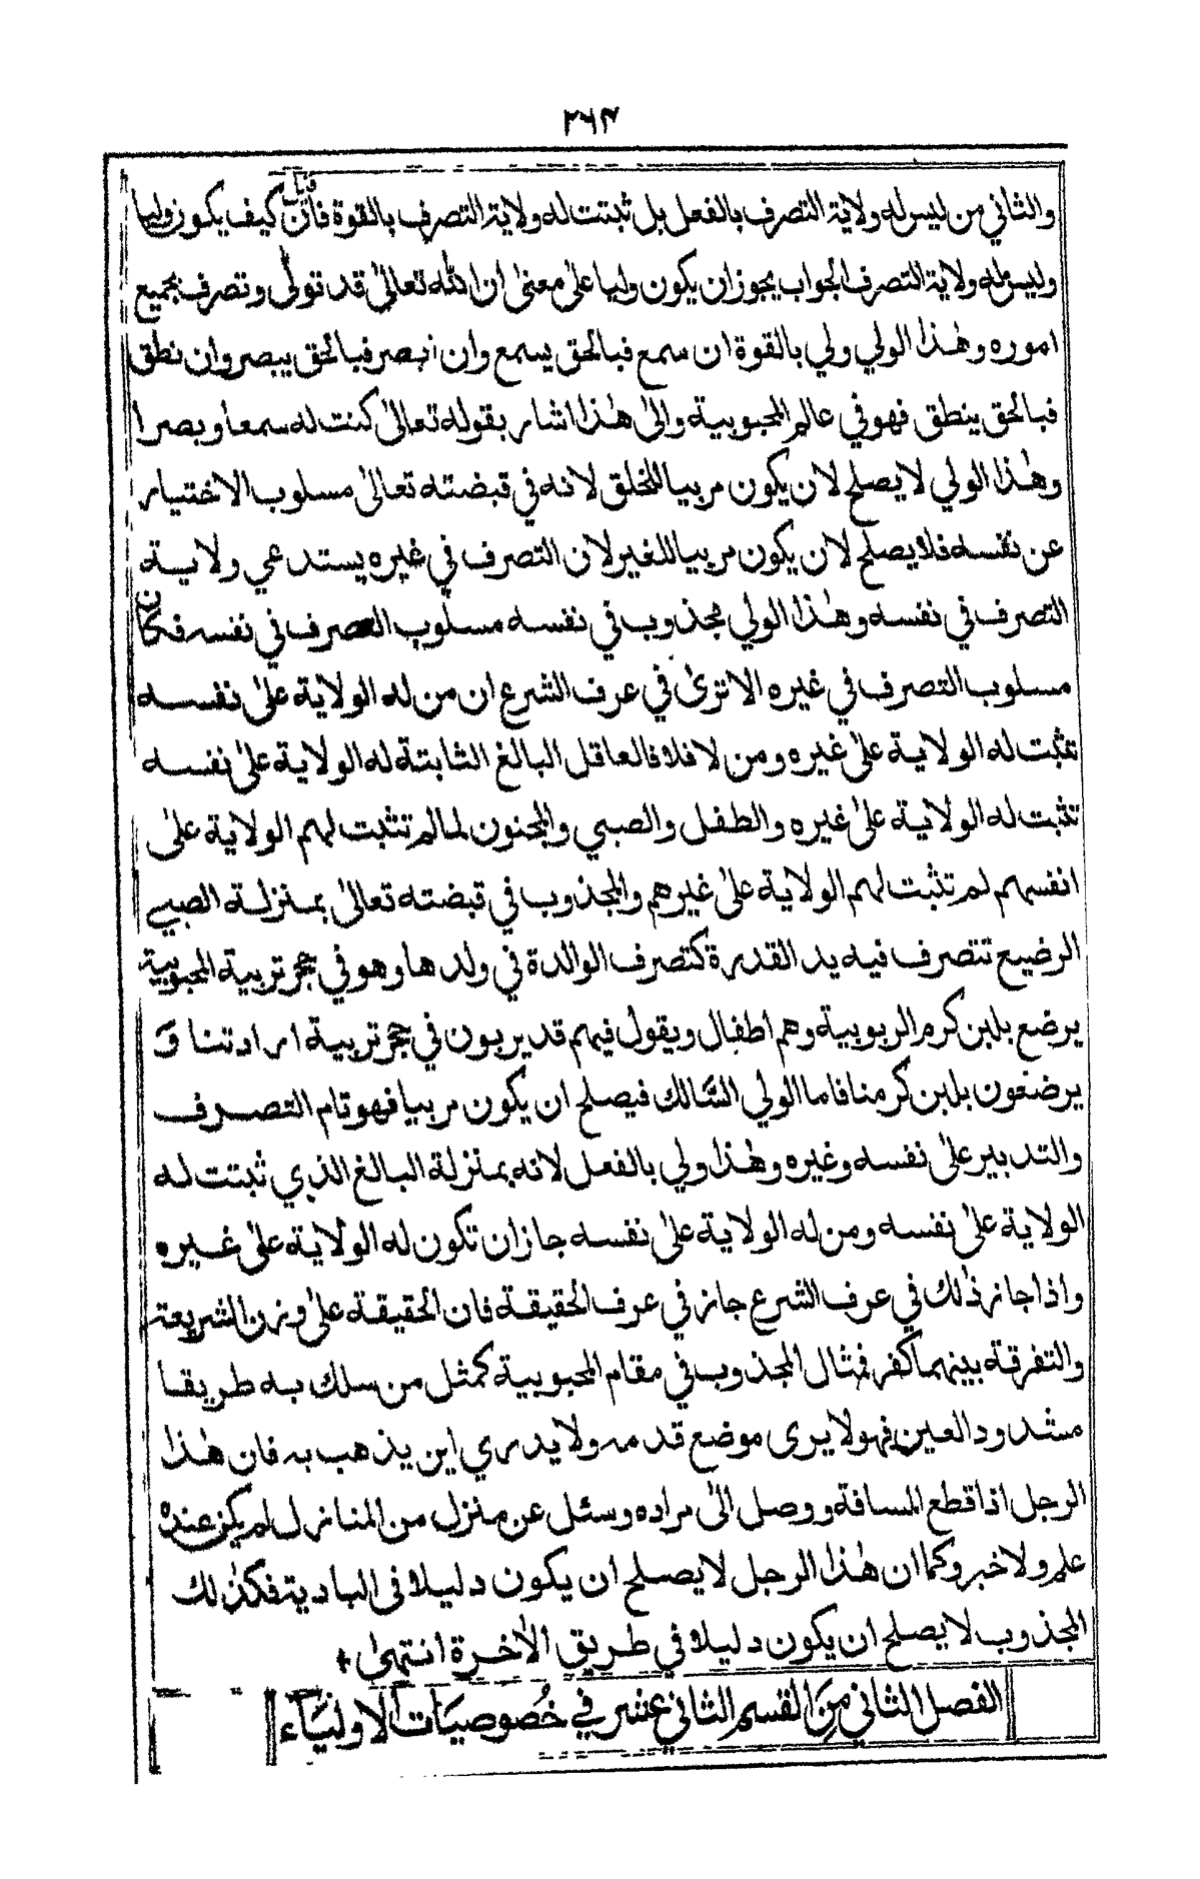 ٢٦٣
والثاني من ليس له ولاية التصرف بالفعل بل ثبتت له ولاية التصرف بالقوة فان قيل كيف يكون وليا
وليس له ولاية التصرف الجواب يجوز ان يكون وليا على معنى ان الله تعالى قد تولى وتصرف بجميع
اموره وهذا الولي ولي بالقوة ان سمع فبالحق يسمع وان ابصر فبالحق يبصر وان نطق
فبالحق ينطق فهو في عالم المحبوبية والى هذا اشار بقوله تعالى كنت له سمعا وبصرا
وهذا الولي لا يصلح لان يكون مربيا للخلق لانه في قبضته تعالى مسلوب الاختيار
عن نفسه فلا يصلح لان يكون مربيا للغير لان التصرف في غيره يستدعي ولاية
التصرف في نفسه وهذا الولي مجذوب في نفسه مسلوب التصرف في نفسه فكان
مسلوب التصرف في غيره الا ترى في عرف الشرع ان من له الولاية على نفسه
تثبت له الولاية على غيره ومن لا فلا فالعاقل البالغ الثابتة له الولاية على نفسه
تثبت له الولاية على غيره والطفل والصبي والمجنون لما لم تثبت لهم الولاية على
انفسهم لم تثبت لهم الولاية على غيرهم والمجذوب في قبضته تعالى بمنزلة الصبي
الرضيع تتصرف فيه يد القدرة كتصرف الوالدة في ولدها وهو في حجر تربية المحبوبية
يرضع بلبن كرم الربوبية وهم اطفال ويقول فيهم قد يربون في حجر تربية ارادتنا و
يرضعون بلبن كرمنا فاما الولي السالك فيصلح ان يكون مربيا فهو تام التصرف
والتدبير على نفسه وغيره وهذا ولي بالفعل لانه بمنزلة البالغ الذي ثبتت له
الولاية على نفسه ومن له الولاية على نفسه جاز ان تكون له الولاية على غيره
واذا جاز ذلك في عرف الشرع جاز في عرف الحقيقة فان الحقيقة على وزن الشريعة
والتفرقة بينهما كفر فمثال المجذوب في مقام المحبوبية كمثل من سلك به طريقا
مشدود العين فهو لا يرى موضع قدمه ولا يدري اين يذهب به فان هذا
الرجل اذا قطع المسافة ووصل الى مراده وسئل عن منزل من المنازل لم يكن عنده
علم ولا خبر وكما ان هذا الرجل لا يصلح ان يكون دليلا فى البادية فكذلك
المجذوب لا يصلح ان يكون دليلا في طريق الاخرة انتهى +
الفصل الثاني من القسم الثاني عشر في خصوصيات الاولياء